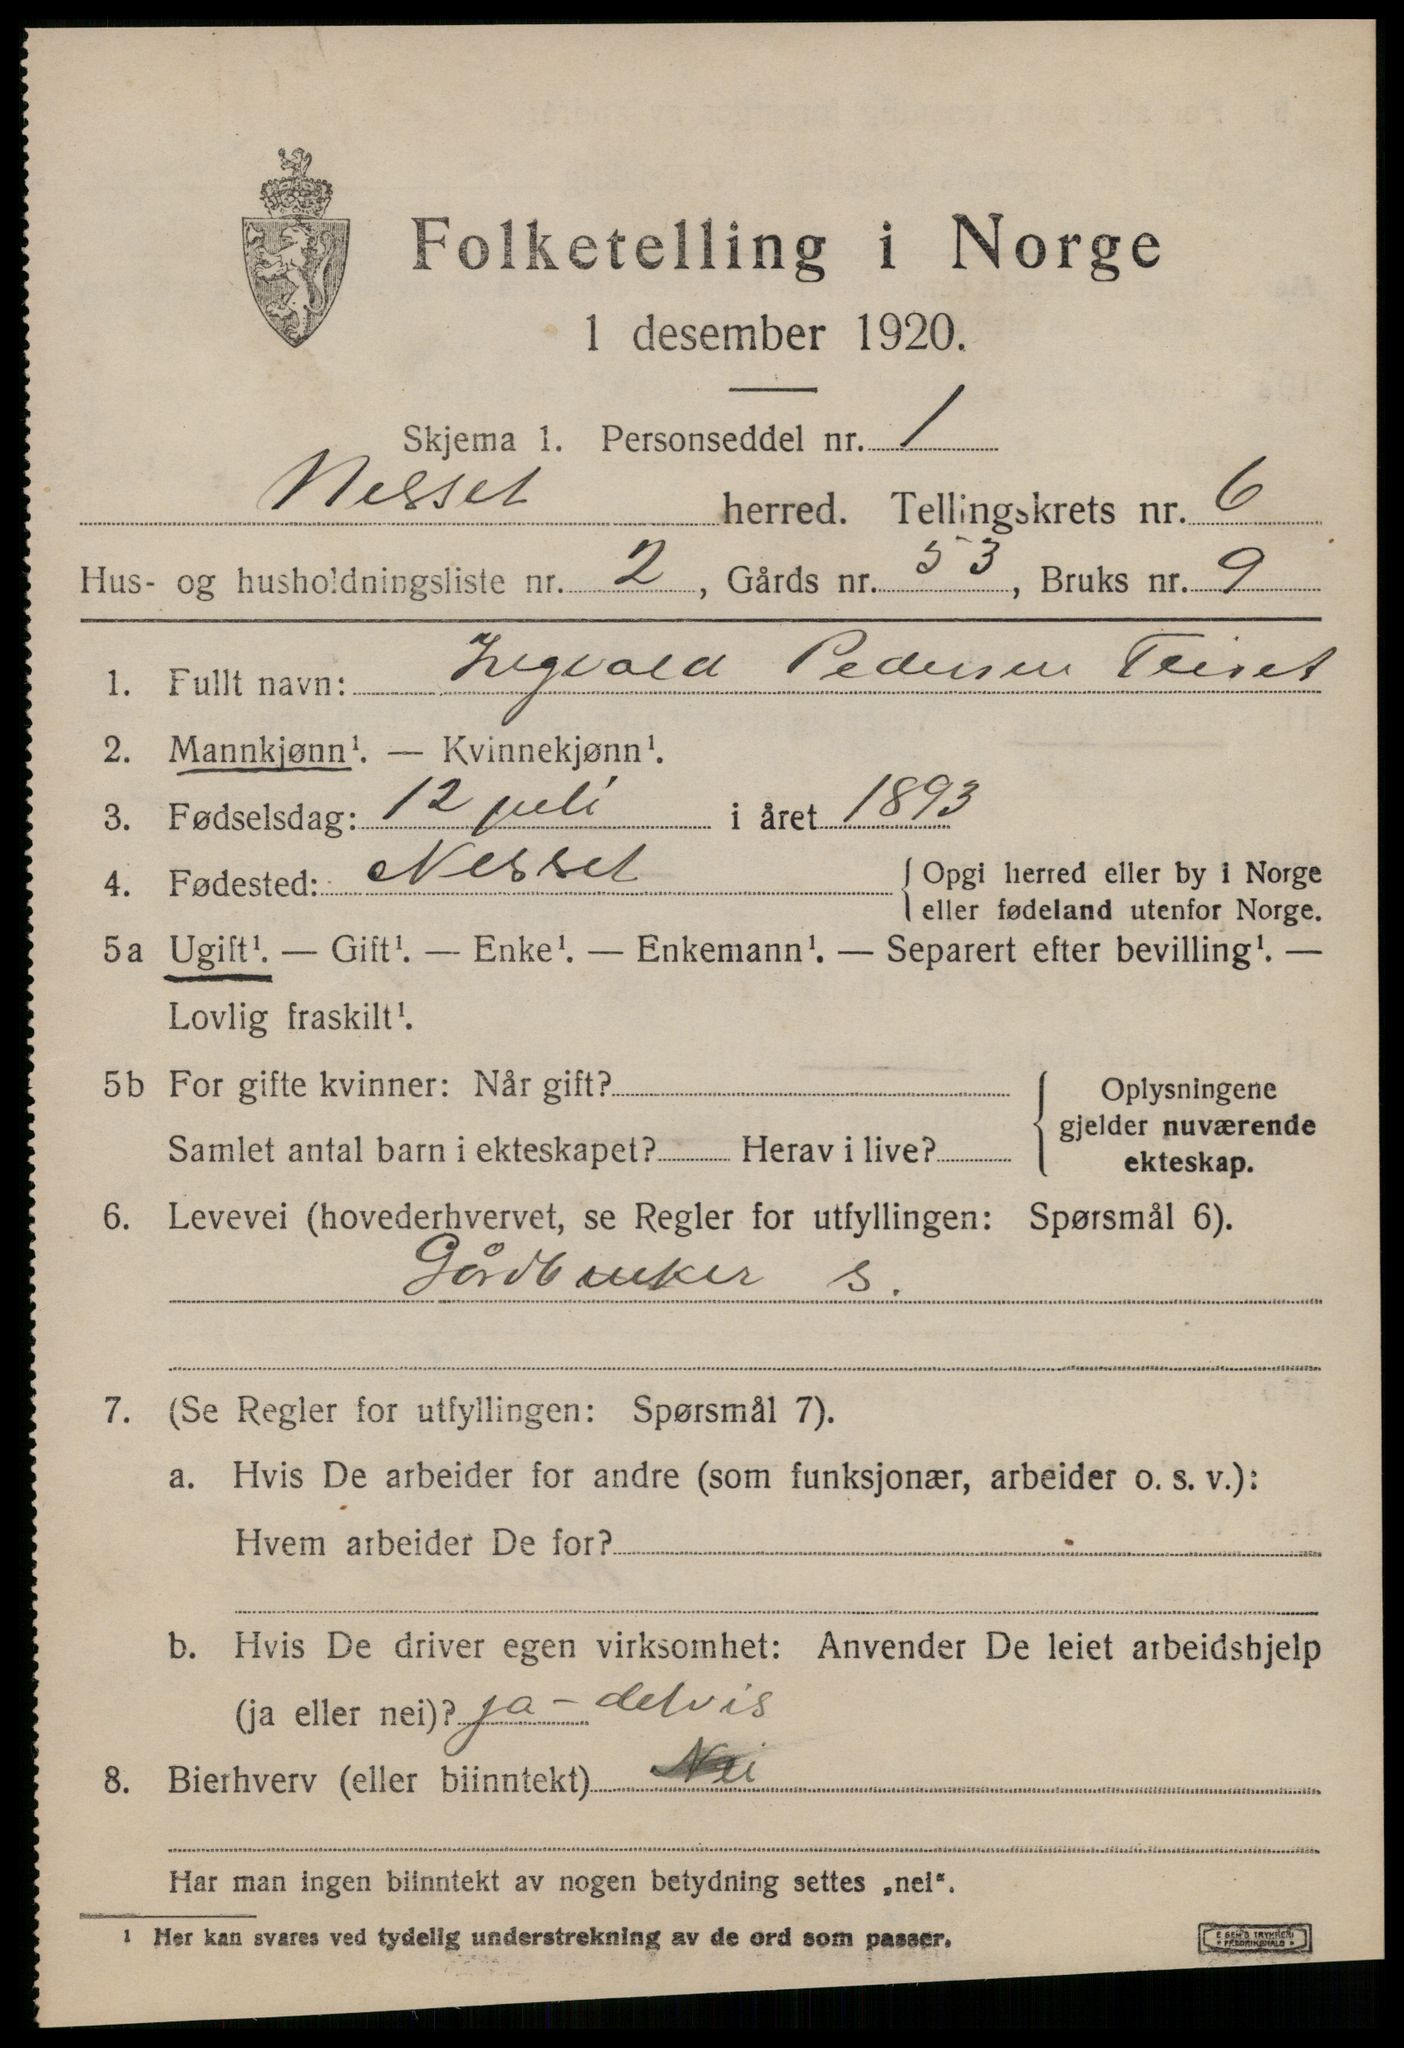 Folketelling i Norge
1 desember 1920.
Skjema 1. Personseddel nr. 1
Nesset herred. Tellingskrets nr. 6
Hus- og husholdningsliste nr. 2, Gårds nr. 53, Bruks nr. 9
1. Fullt navn: Ingvald Pedersen Teiset
2. Mannkjønn¹. — Kvinnekjønn¹.
3. Fødselsdag: 12 juli i året 1893
4. Fødested: Nesset { Opgi herred eller by i Norge
eller fødeland utenfor Norge.
5a Ugift¹. — Gift¹. — Enke¹. — Enkemann¹. — Separert efter bevilling¹. —
Lovlig fraskilt¹.
5b For gifte kvinner: Når gift? { Oplysningene
gjelder nuværende
Samlet antal barn i ekteskapet? Herav i live? ekteskap.
6. Levevei (hovederhvervet, se Regler for utfyllingen: Spørsmål 6).
Gårdbruker s.
7. (Se Regler for utfyllingen: Spørsmål 7).
a. Hvis De arbeider for andre (som funksjonær, arbeider o. s. v.):
Hvem arbeider De for?
b. Hvis De driver egen virksomhet: Anvender De leiet arbeidshjelp
(ja eller nei)? ja - delvis
8. Bierhverv (eller biinntekt) Nei
Har man ingen biinntekt av nogen betydning settes „nei“.
¹ Her kan svares ved tydelig understrekning av de ord som passer.
E SEM'S TRYKKERI
FREDRIKSHALD